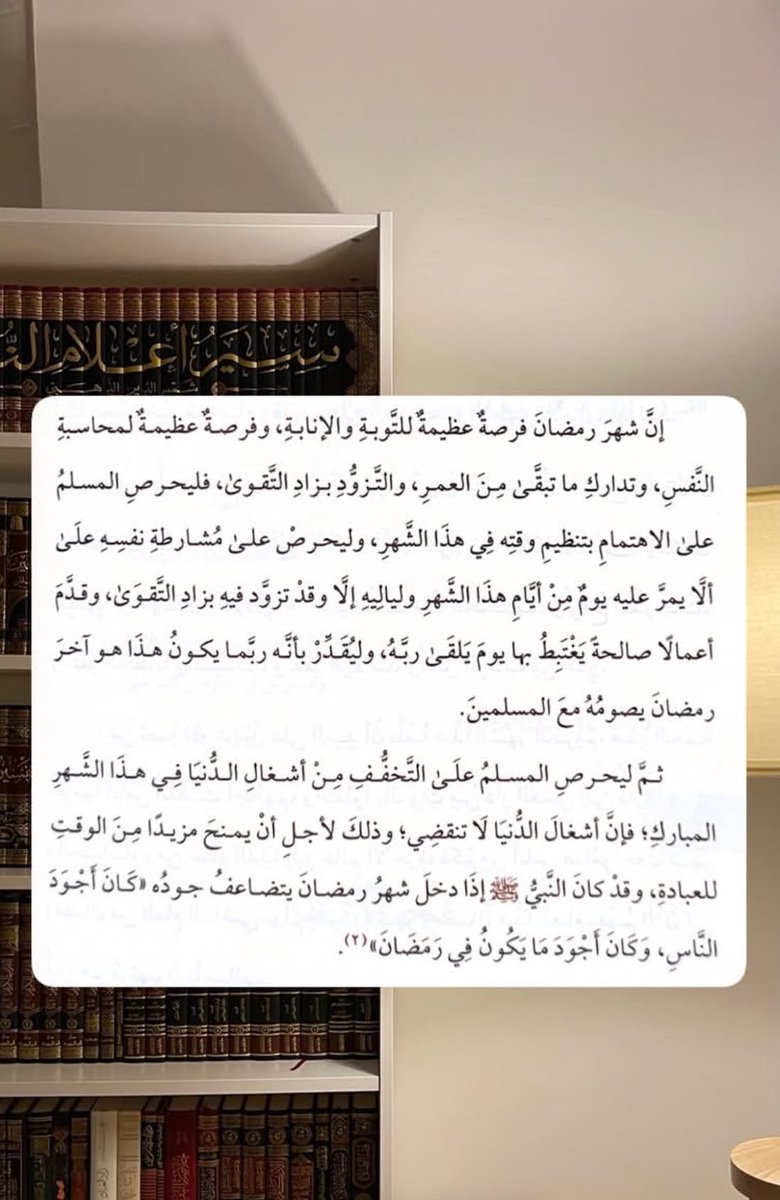 سير أعلام الن
إنَّ شهرَ رمضانَ فرصةٌ عظيمةٌ للتَّوبةِ والإنابةِ، وفرصةٌ عظيمةٌ لمحاسبةِ
النَّفسِ، وتداركِ ما تبقَّىٰ مِنَ العمرِ، والتَّزوُّدِ بزادِ التَّقوىٰ، فليحرصِ المسلمُ
علىٰ الاهتمامِ بتنظيمِ وقتِه فِي هذَا الشَّهرِ، وليحرصْ علىٰ مُشارطةِ نفسِهِ علَىٰ
ألَّا يمرَّ عليه يومٌ مِنْ أيَّامِ هذَا الشَّهرِ ولياليهِ إلَّا وقدْ تزوَّد فيهِ بزادِ التَّقوَىٰ، وقدَّمَ
أعمالًا صالحةً يَغْتَبِطُ بها يومَ يَلقَىٰ ربَّهُ، وليُقَدِّرْ بأنَّه ربَّما يكونُ هذَا هو آخرَ
رمضانَ يصومُهُ معَ المسلمينَ.
ثمَّ ليحرصِ المسلمُ علَىٰ التَّخفُّفِ مِنْ أشغالِ الدُّنيَا فِي هذَا الشَّهرِ
المباركِ؛ فإنَّ أشغالَ الدُّنيَا لَا تنقضِي؛ وذلكَ لأجلِ أنْ يمنحَ مزيدًا مِنَ الوقتِ
للعبادةِ، وقدْ كانَ النَّبيُّ ﷺ إذَا دخلَ شهرُ رمضانَ يتضاعفُ جودُه «كَانَ أَجْوَدَ
النَّاسِ، وَكَانَ أَجْوَدَ مَا يَكُونُ فِي رَمَضَانَ»(٢).